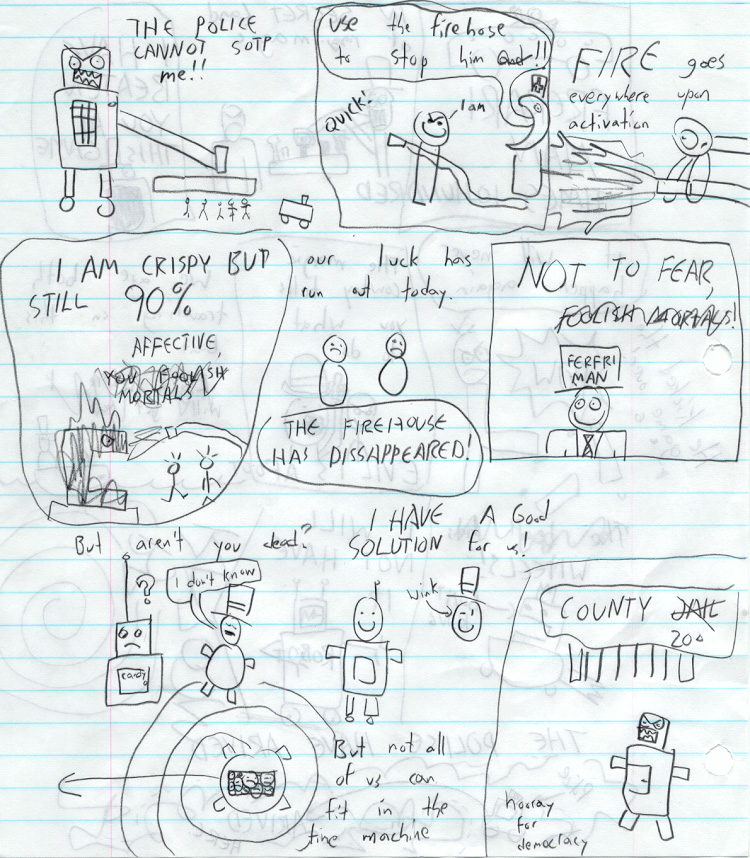 THE POLICE
CANNOT SOTP
me!!
use the firehose
to stop him
Quick!
I am
FIRE goes
everywhere upon
activation
I AM CRISPY BUT
STILL 90%
AFFECTIVE,
YOU FOOLISH
MORTALS
our luck has
run out today.
THE FIREHOUSE
HAS DISSAPPEARED!
NOT TO FEAR,
FOOLISH MORTALS!
FERFRI
MAN
But aren't you dead?
?
I don't know
candy
I HAVE A Good
SOLUTION for us!
wink
COUNTY JAIL
ZOO
But not all
of us can
fit in the
time machine
hooray
for
democracy